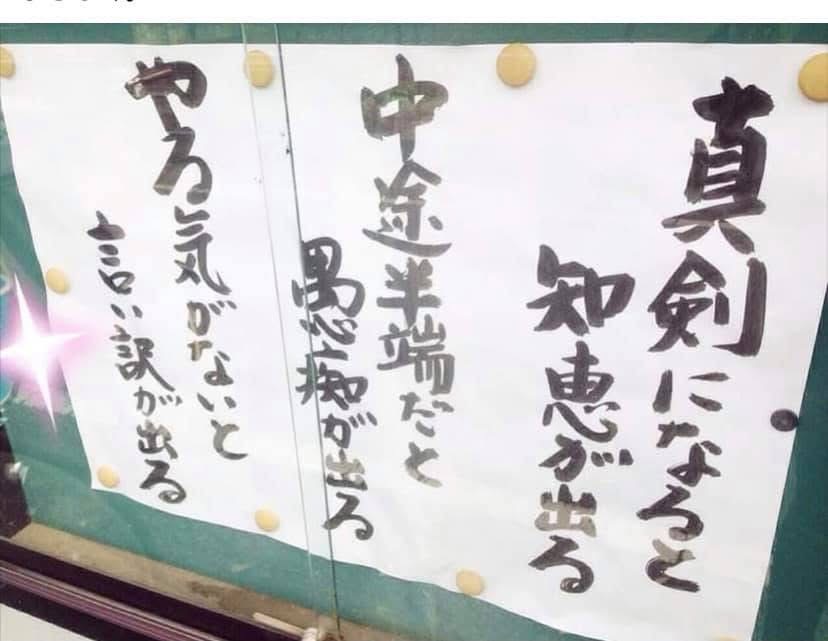 真剣になると
知恵が出る
中途半端だと
愚痴が出る
やる気がないと
言い訳が出る